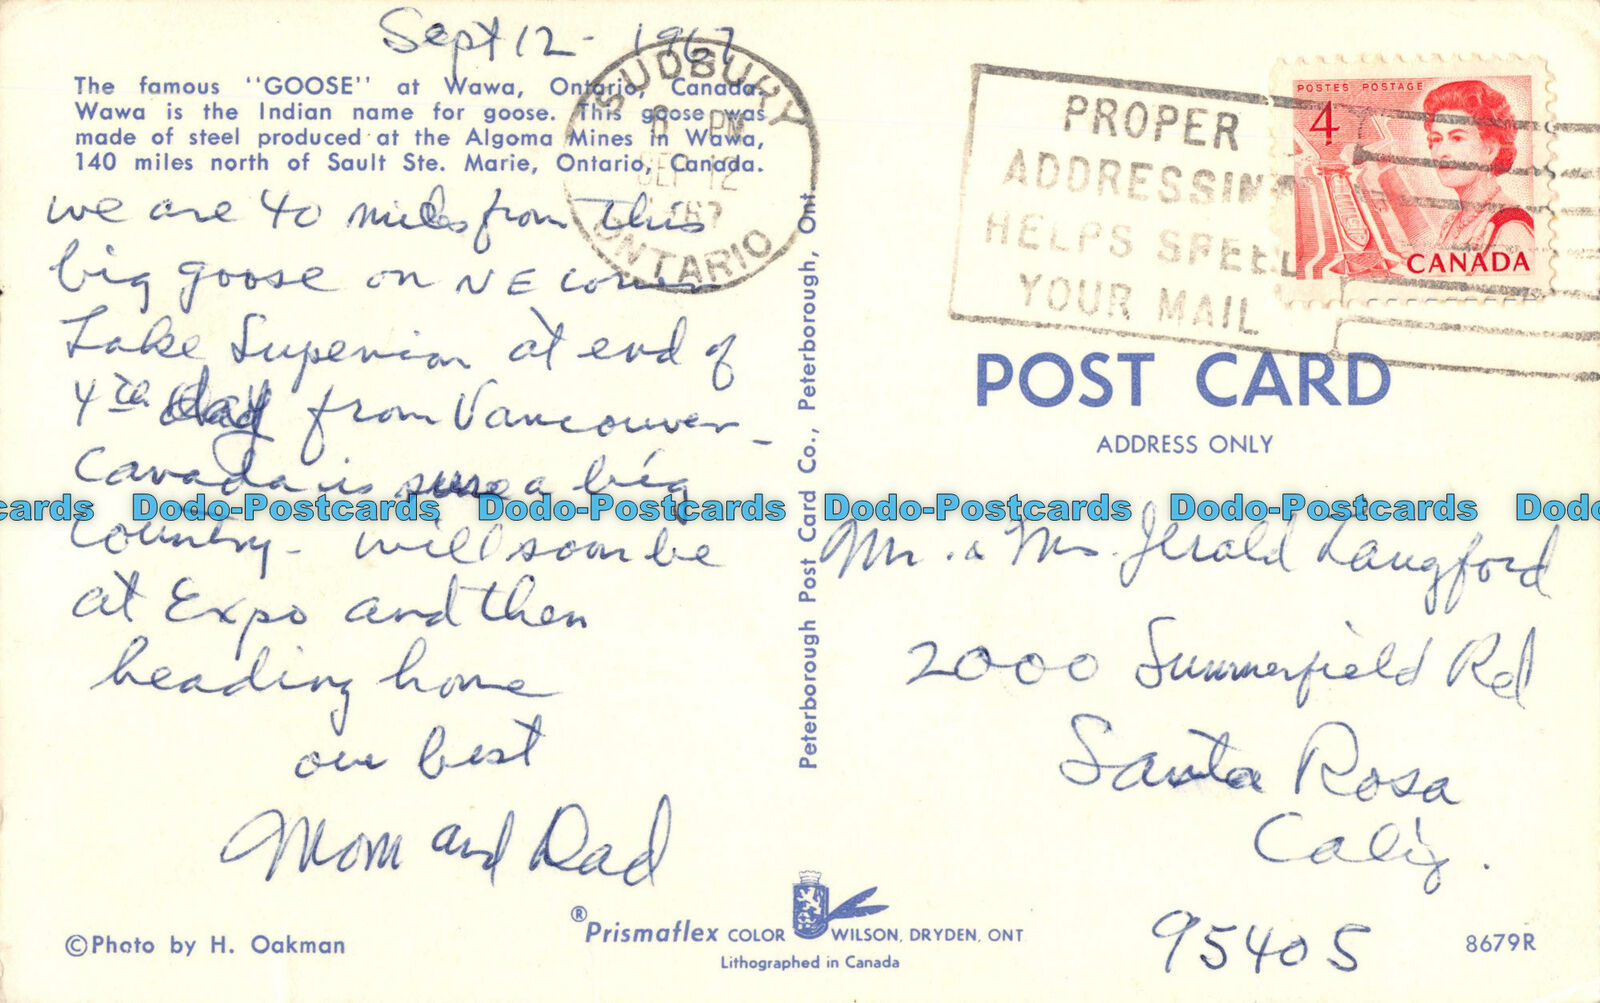 Sept 12 - 1967
The famous "GOOSE" at Wawa, Ontario, Canada.
Wawa is the Indian name for goose. This goose was
made of steel produced at the Algoma Mines in Wawa,
140 miles north of Sault Ste. Marie, Ontario, Canada.
we are 40 miles from this
big goose on NE corner
Lake Superior at end of
4th day from Vancouver -
Canada is sure a big
country - will soon be
at Expo and then
heading home
our best
Mom and Dad
©Photo by H. Oakman
SUDBURY
PM
SEP 12
1967
ONTARIO
Peterborough Post Card Co., Peterborough, Ont.
®Prismaflex COLOR WILSON, DRYDEN, ONT
Lithographed in Canada
PROPER
ADDRESSING
HELPS SPEED
YOUR MAIL
POSTES POSTAGE
4
CANADA
POST CARD
ADDRESS ONLY
Mr. & Mrs. Jerald Langford
2000 Summerfield Rd
Santa Rosa
Calif.
95405
8679R
cards Dodo-Postcards Dodo-Postcards Dodo-Postcards Dodo-Postcards Dodo